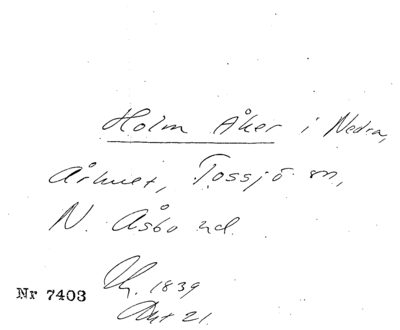 Holm Åker i Nedra,
Århuet, Tossjö sn,
N. Åsbo hd.
Nr 7403
1839
Akt 21.